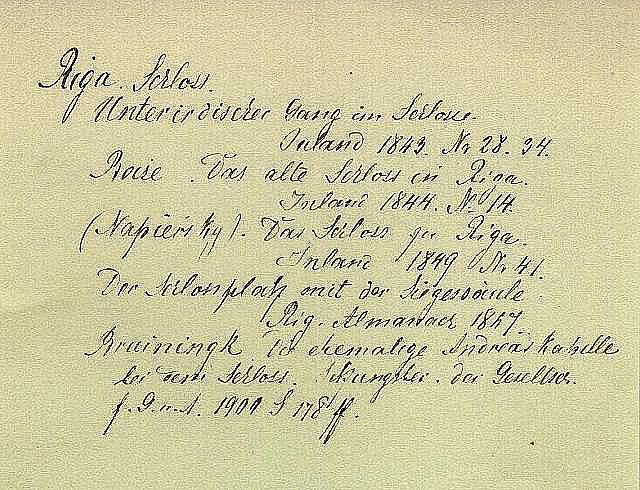 Riga. Schloss.
Unterirdischer Gang im Schlosse.
Inland 1843. Nr 28. 34.
Das alte Schloss in Riga.
Inland 1844. No 14.
(Napiersky). Das Schloss zu Riga.
Inland 1849 Nr 41.
Der Schlossplatz mit der Siegessäule.
Rig. Almanach 1857.
Bruiningk. Die ehemalige Andreas Kapelle
bei dem Schloss. Sitzungsber. der Gesellsch.
f. G. u. A. 1900 S 178 ff.